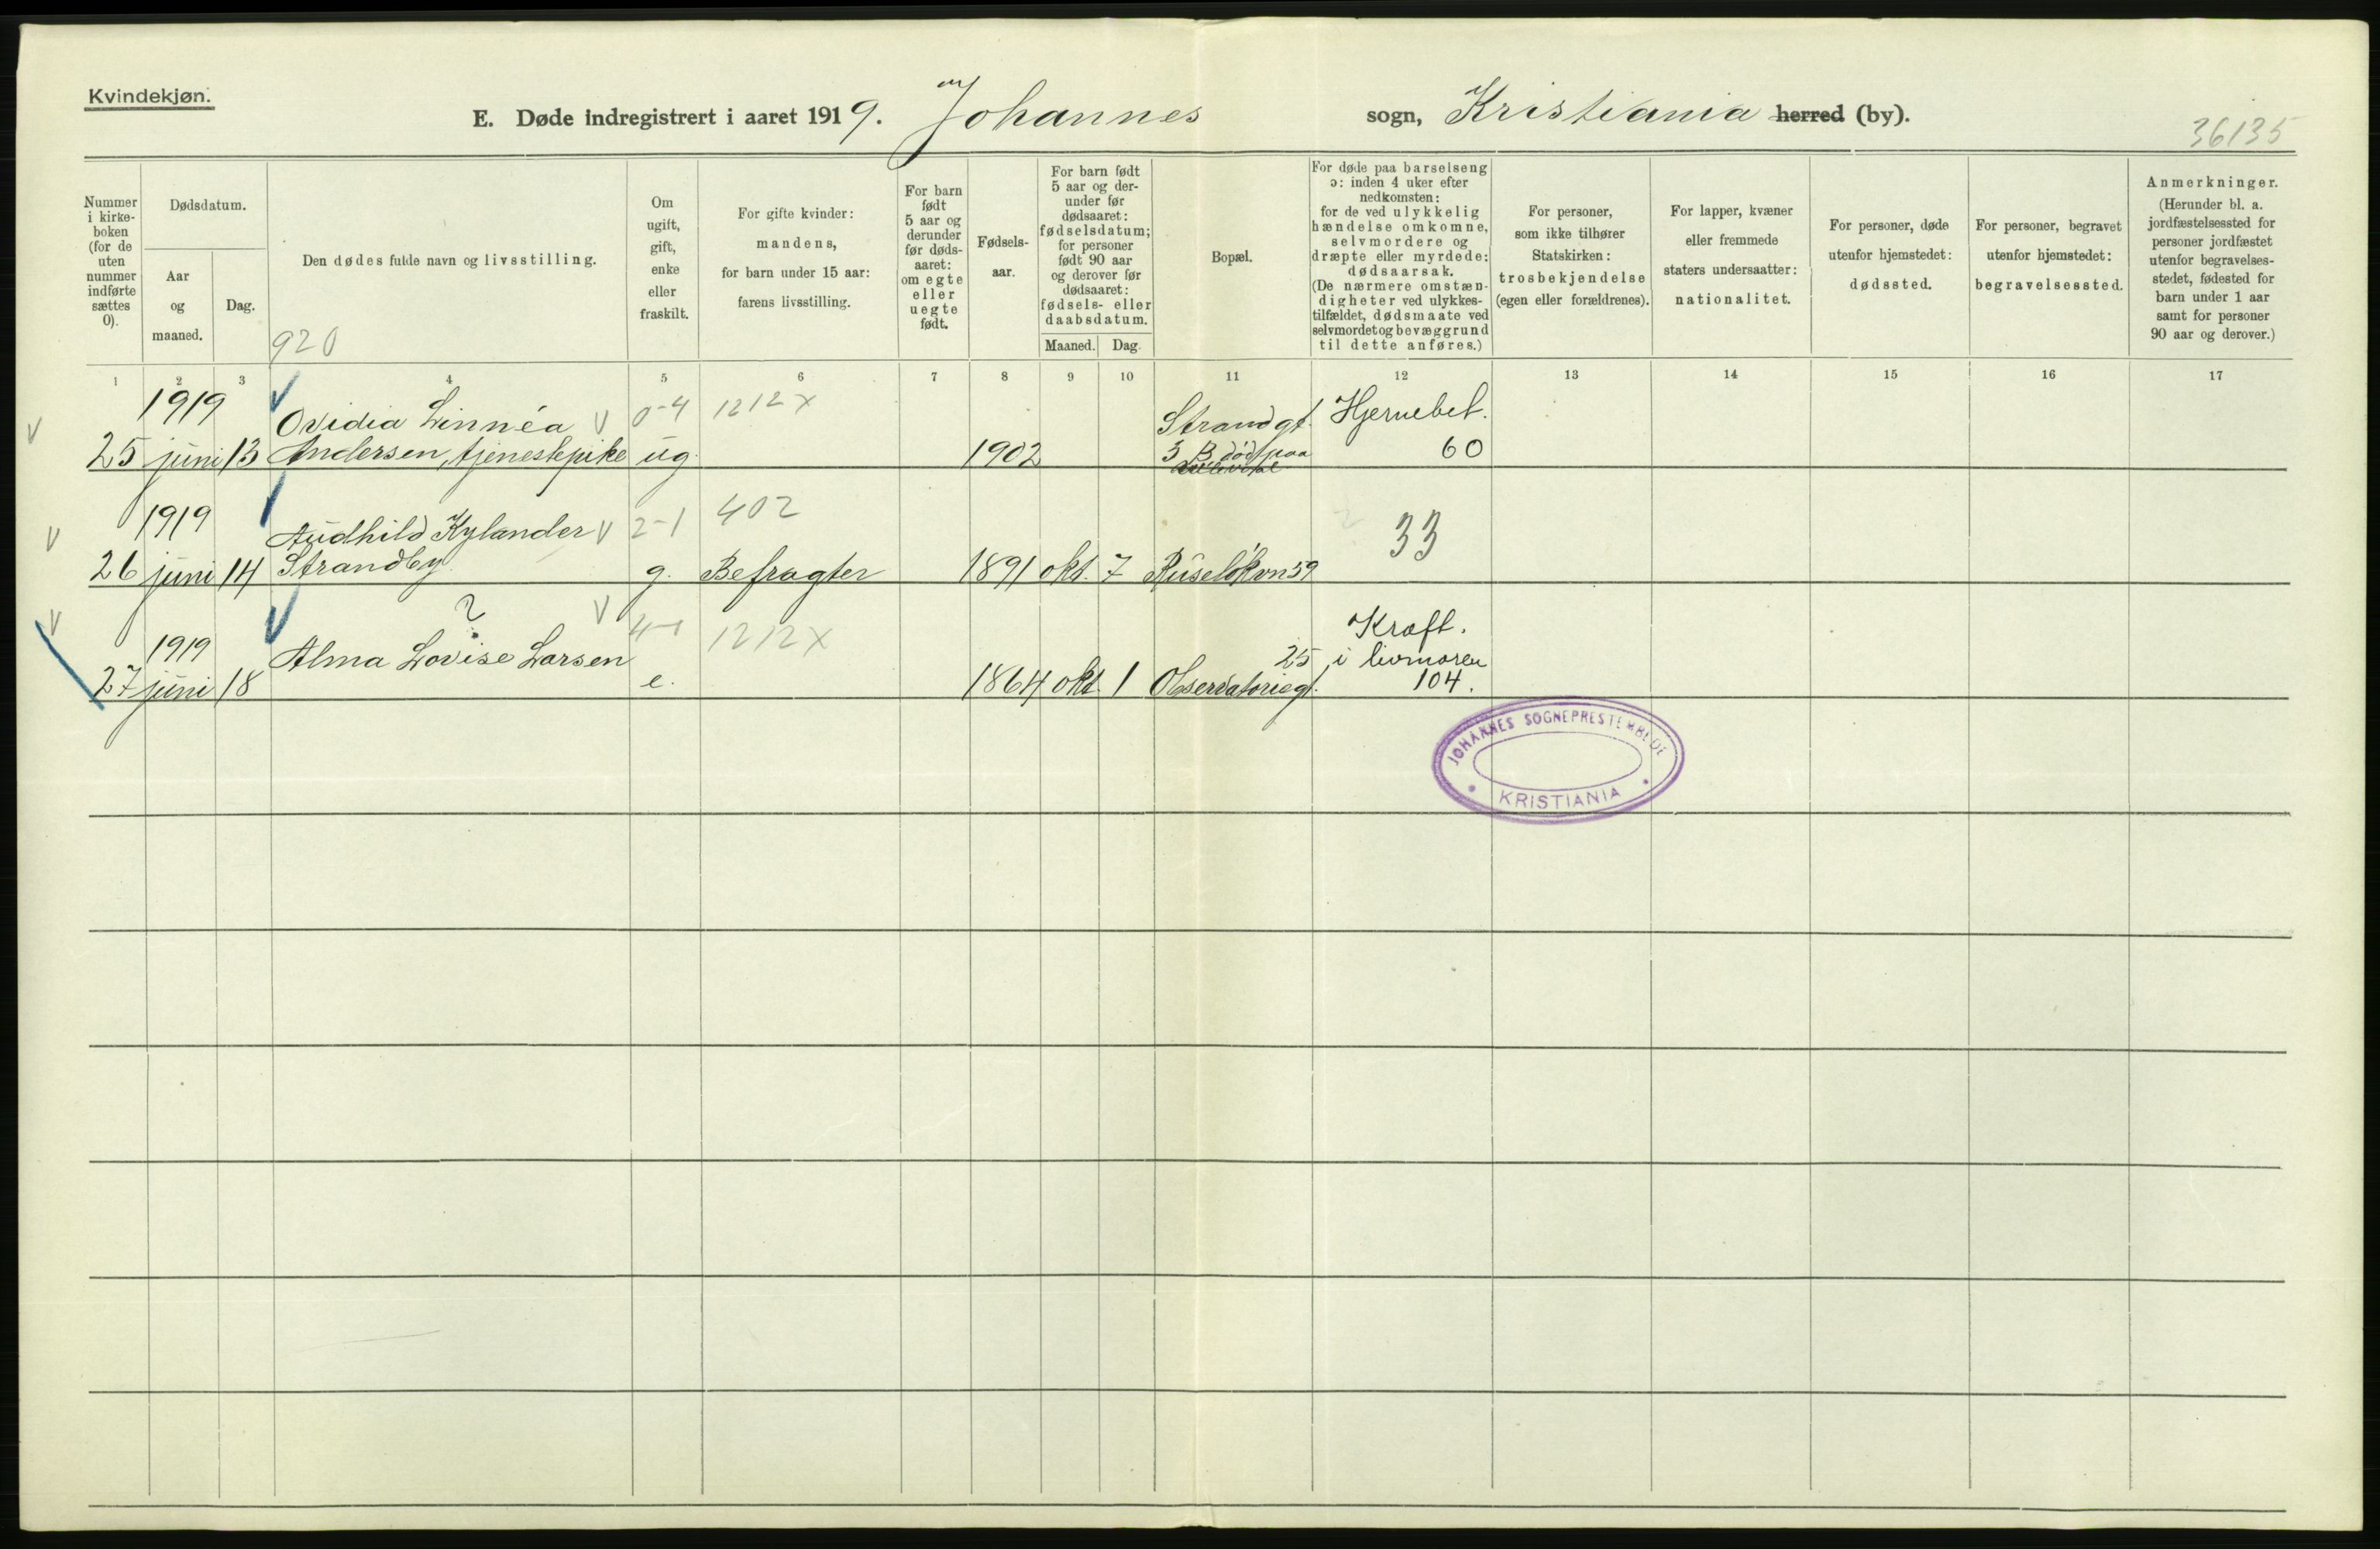 Kvindekjøn.
E. Døde indregistrert i aaret 1919. Johannes sogn, Kristiania herred (by).
36135
Nummer i kirke-boken (for de uten nummer indførte sættes 0).
Dødsdatum.
Aar og maaned.
Dag.
Den dødes fulde navn og livsstilling.
920
Om ugift, gift, enke eller fraskilt.
For gifte kvinder: mandens, for barn under 15 aar: farens livsstilling.
For barn født 5 aar og derunder før døds-aaret: om egte eller uegte født.
Fødsels-aar.
For barn født 5 aar og der-under før dødsaaret: fødselsdatum; for personer født 90 aar og derover før dødsaaret: fødsels- eller daabsdatum.
Maaned. Dag.
Bopæl.
For døde paa barselseng ɔ: inden 4 uker efter nedkomsten: for de ved ulykkelig hændelse omkomne, selvmordere og dræpte eller myrdede: dødsaarsak. (De nærmere omstæn-digheter ved ulykkes-tilfældet, dødsmaate ved selvmordet og bevæggrund til dette anføres.)
For personer, som ikke tilhører Statskirken: trosbekjendelse (egen eller forældrenes).
For lapper, kvæner eller fremmede staters undersaatter: nationalitet.
For personer, døde utenfor hjemstedet: dødssted.
For personer, begravet utenfor hjemstedet: begravelsessted.
Anmerkninger. (Herunder bl. a. jordfæstelsessted for personer jordfæstet utenfor begravelses-stedet, fødested for barn under 1 aar samt for personer 90 aar og derover.)
1 2 3 4 5 6 7 8 9 10 11 12 13 14 15 16 17
1919 Ovidia Linnéa V 0-4 1212 x Strandgt. Hjernebet.
25 juni 13 Andersen, tjenestepike ug. 1902 3 B død paa 60
1919 Audhild Kylander V 2-1 402 33
26 juni 14 Strandby g. Befragter 1891 okt. 7 Ruseløkvn 59
? V 4-1 1212 x Kræft.
1919 Alma Lovise Larsen 25 i livmoren
27 juni 18 e. 1864 okt. 1 Observatoriegt. 104.
JOHANNES SOGNEPRESTEMBEDE
KRISTIANIA